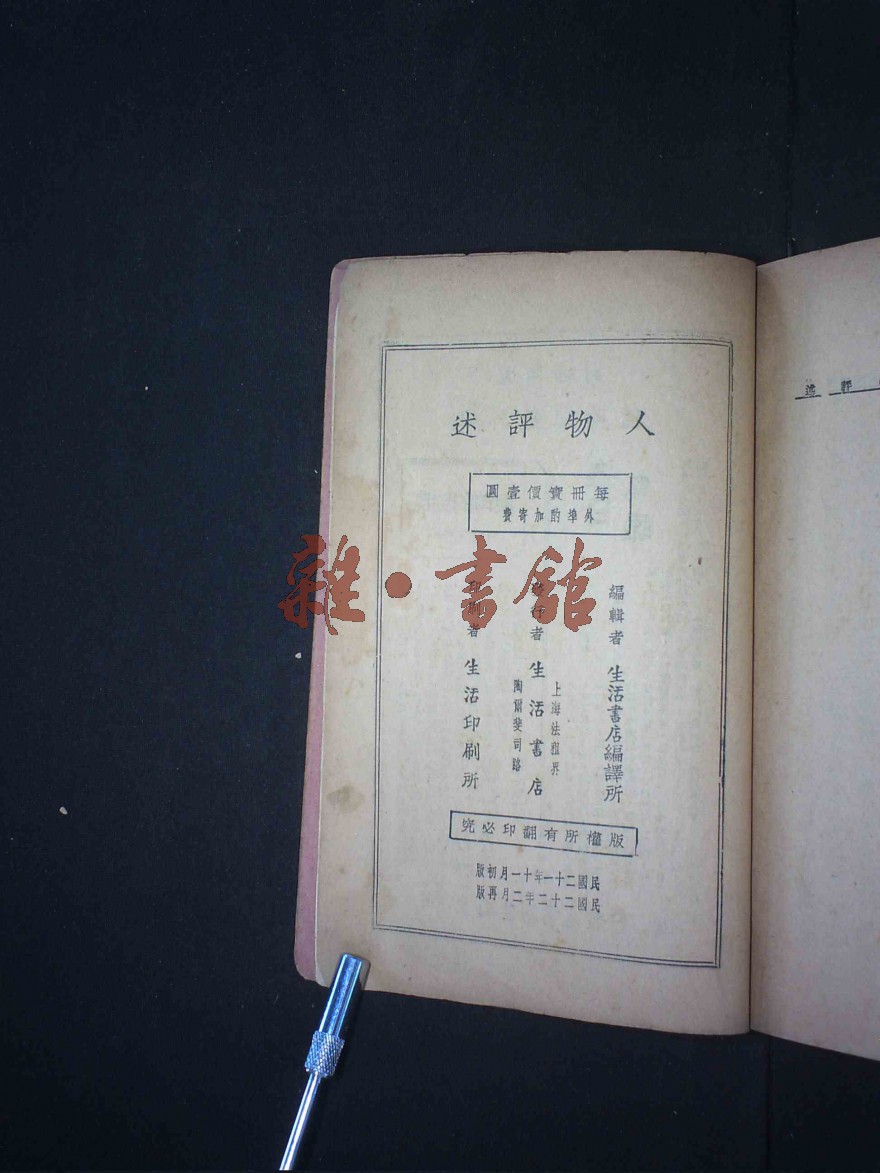 人物評述
每冊實價壹圓
外埠酌加寄費
編輯者 生活書店編譯所
發行者 生活書店
上海法租界
陶爾斐司路
印刷者 生活印刷所
版權所有翻印必究
民國二十一年十一月初版
民國二十二年二月再版
評述
雜·書館